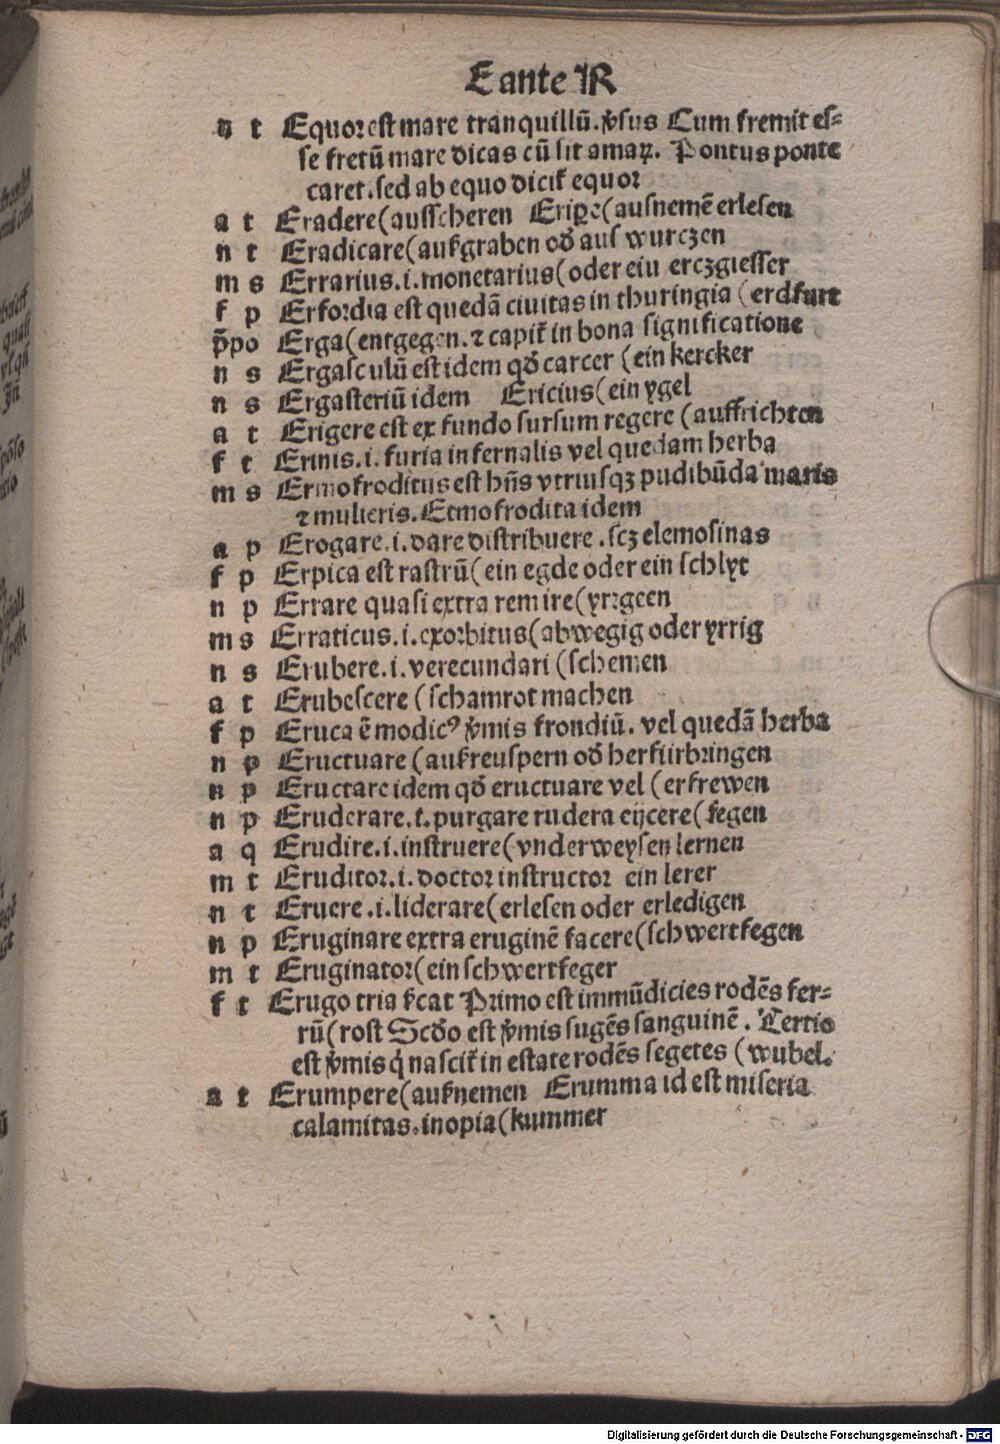 E ante R
n t Equor est mare tranquillū. v̾sus Cum fremit es⸗
se fretū mare dicas cū sit amaꝝ. Pontus ponte
caret. sed ab equo dicit᷑ equor
a t Eradere (ausscheren Eripe̅(ausnemē erlesen
n t Eradicare (aufgraben od̛ aus wurczen
m s Errarius .i. monetarius (oder ein erczgiesser
f p Erfordia est quedā ciuitas in thuringia (erdfurt
p̄po Erga (entgegen. ⁊ capit᷑ in bona significatione
n s Ergasculū est idem qd̛ carcer (ein kercker
n s Ergasteriū idem Ericius (ein ygel
a t Erigere est ex fundo sursum regere (auffrichten
f t Erinis .i. furia infernalis vel quedam herba
m s Ermofroditus est hn̄s vtriusqꝫ pudibūda maris
⁊ mulieris. Etmofrodita idem
a p Erogare .i. dare distribuere .scꝫ elemosinas
f p Erpica est rastrū (ein egde oder ein schlyt
n p Errare quasi extra rem ire (yrrgeen
m s Erraticus .i. exorbitus (abwegig oder yrrig
n s Erubere .i. verecundari (schemen
a t Erubescere (schamrot machen
f p Eruca ē modicꝰ v̾mis frondiū. vel quedā herba
n p Eructuare (aufreuspern od̛ herfürbringen
n p Eructare idem qd̛ eructuare vel (erfrewen
n p Eruderare .t. purgare rudera eijcere (fegen
a q Erudire .i. instruere (vnderweysen lernen
m t Eruditor .i. doctor instructor ein lerer
n t Eruere .i. liderare (erlesen oder erledigen
n p Eruginare extra eruginē facere (schwertfegen
m t Eruginator (ein schwertfeger
f t Erugo tria s̛cat Primo est immūdicies rodēs fer⸗
rū (rost Scd̛o est v̾mis sugēs sanguinē. Tertio
est v̾mis q̛ nascit᷑ in estate rodēs segetes (wubel.
a t Erumpere (aufnemen Erumma id est miseria
calamitas. inopia (kummer
Digitalisierung gefördert durch die Deutsche Forschungsgemeinschaft - DFG